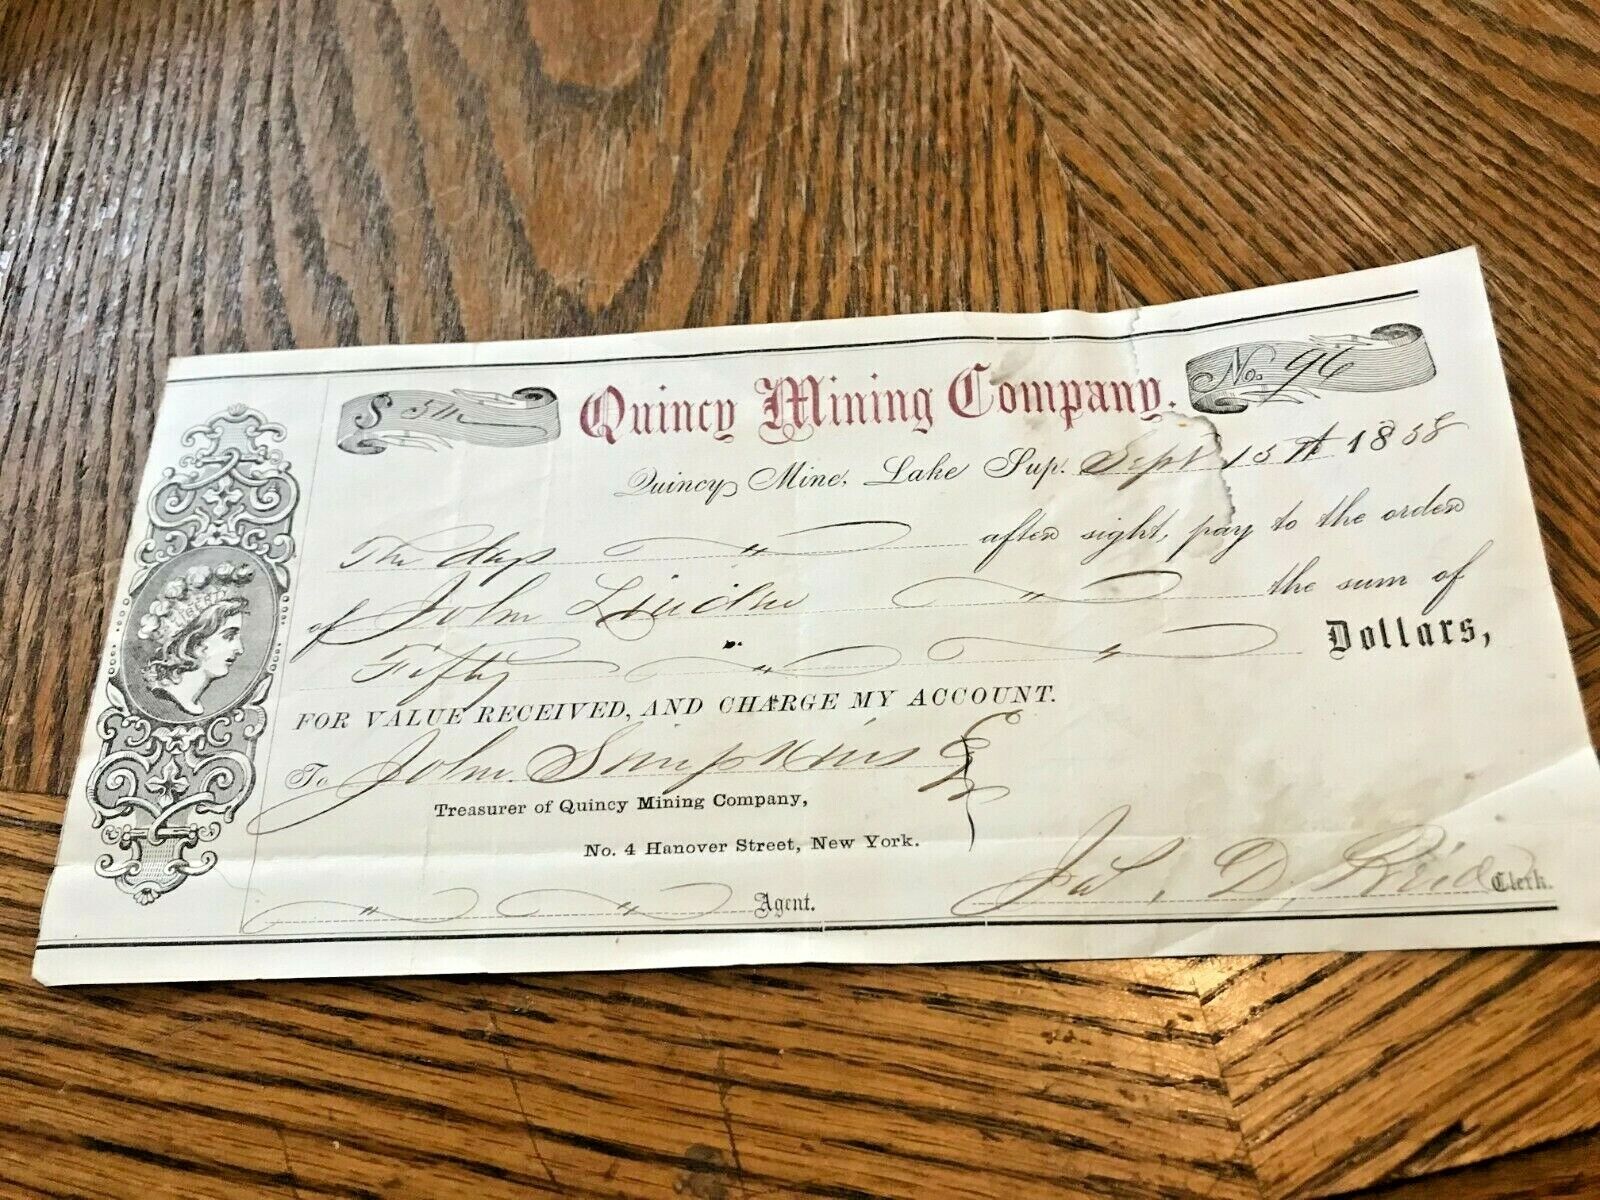 $ 50 Quincy Mining Company. No. 96
Quincy Mine, Lake Sup. Sept 15th 1858
days after sight, pay to the order
of John the sum of
Fifty Dollars,
FOR VALUE RECEIVED, AND CHARGE MY ACCOUNT.
To John Simpkins Esq
Treasurer of Quincy Mining Company,
No. 4 Hanover Street, New York.
Agent. D. Reid Clerk.
LIBERTY